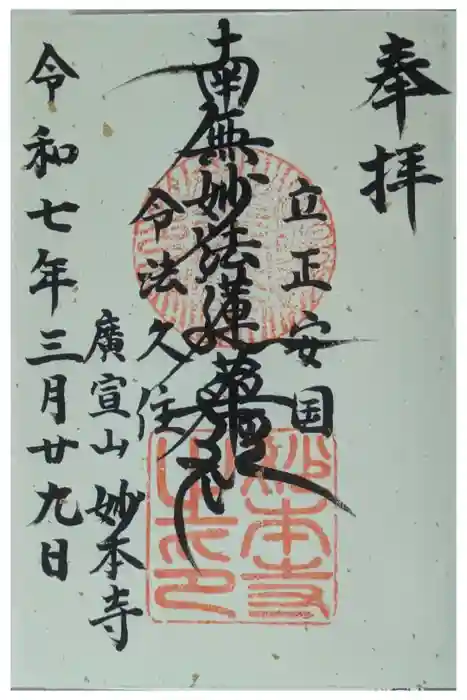 奉拝
立正安国
南無妙法蓮華経
令法久住
廣宣山 妙本寺
令和七年三月廿九日
妙本寺